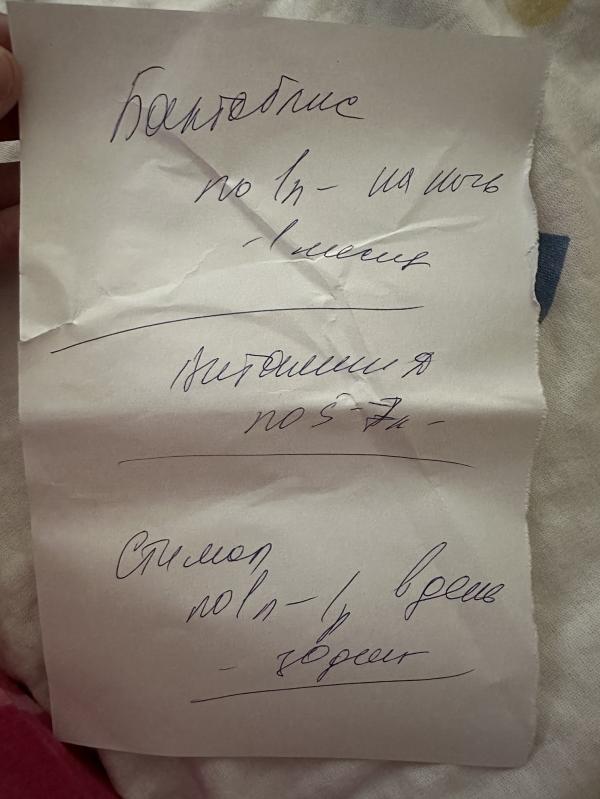 Бактоблис
по 1п - на ночь
- 1 месяц
Витамин Д
по 5-7к -
Стимол
по 1п - 1р в день
- 30 дней